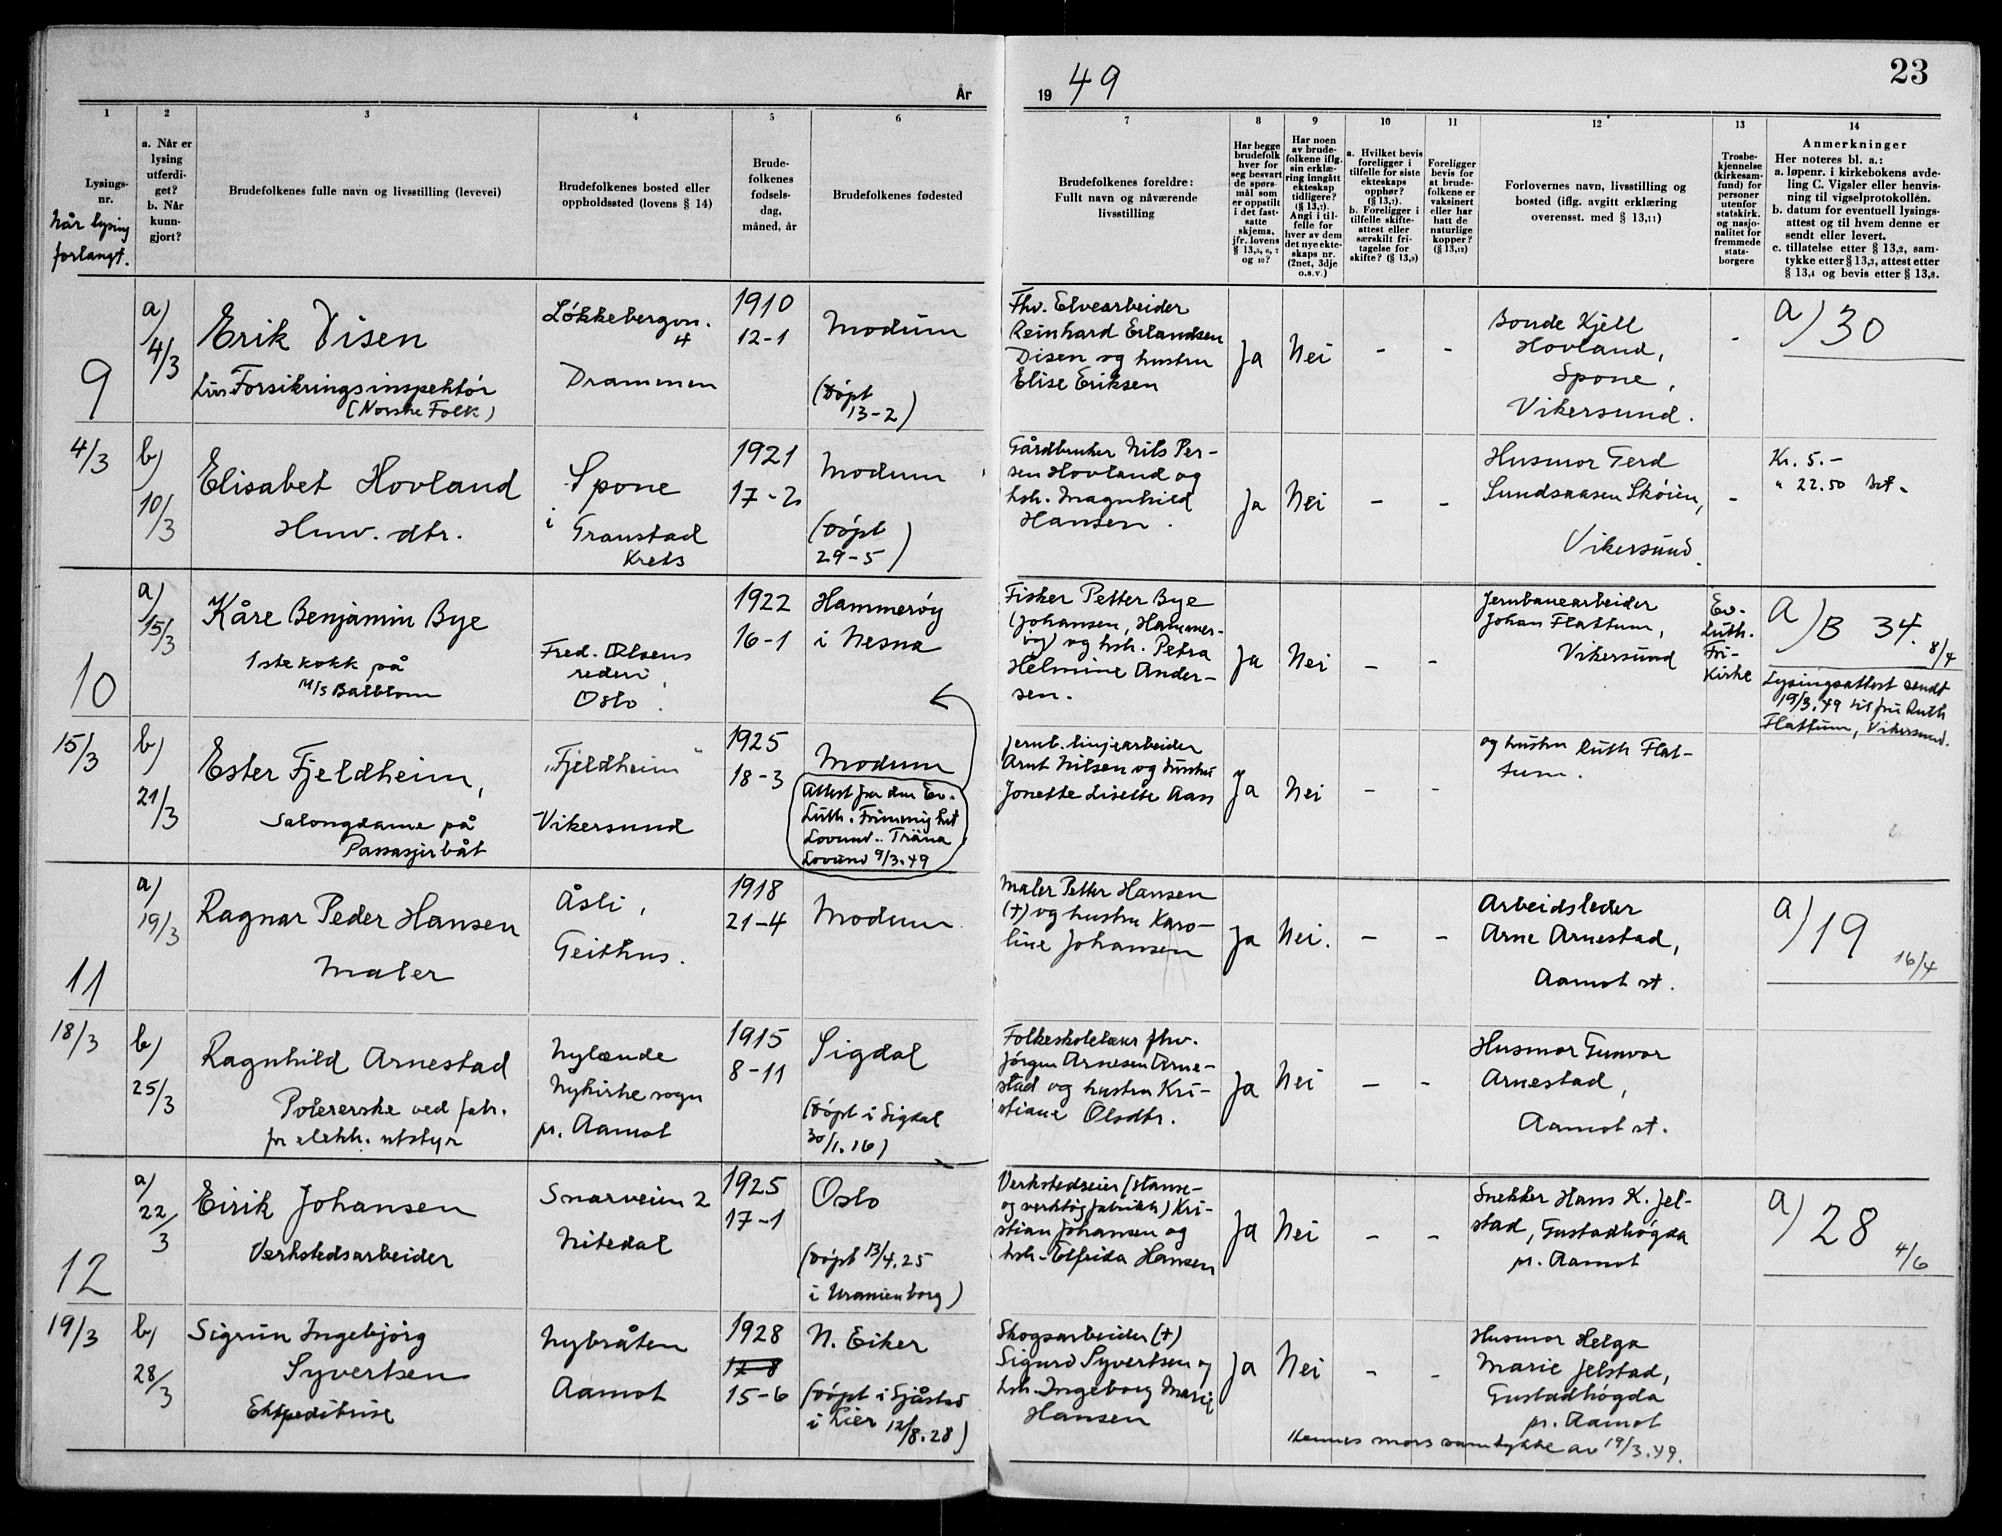 År
1949
23
1
2
3
4
5
6
7
8
9
10
11
12
13
14
Lysings-
nr.
Når lysing
forlangt.
a. Når er
lysing
utferdi-
get?
b. Når
kunn-
gjort?
Brudefolkenes fulle navn og livsstilling (levevei)
Brudefolkenes bosted eller
oppholdssted (lovens § 14)
Brude-
folkenes
fødsels-
dag,
måned, år
Brudefolkenes fødested
Brudefolkenes foreldre:
Fullt navn og nåværende
livsstilling
Har begge
brudefolk
hver for
seg besvart
de spørs-
mål som
er oppstilt
i det fast-
satte
skjema,
jfr. lovens
§ 13,5, 6, 7
og 10?
Har noen
av brude-
folkene iflg.
sin erklæ-
ring inngått
ekteskap
tidligere?
(§ 13,7).
Angi i til-
felle for
hver av dem
det nye ekte-
skaps nr.
(2net, 3dje
o.s.v.)
a. Hvilket bevis
foreligger i
tilfelle for siste
ekteskaps
opphør?
(§ 13,7).
b. Foreligger i
tilfelle skifte-
attest eller
særskilt fri-
tagelse for
skifte? (§ 13,9)
Foreligger
bevis for
at brude-
folkene er
vaksinert
eller har
hatt de
naturlige
kopper?
(§ 13,12)
Forlovernes navn, livsstilling og
bosted (iflg. avgitt erklæring
overensst. med § 13,11)
Trosbe-
kjennelse
(kirkesam-
fund) for
personer
utenfor
statskirk.
og nasjo-
nalitet for
fremmede
stats-
borgere
Anmerkninger
Her noteres bl. a.:
a. løpenr. i kirkebokens avde-
ling C. Vigsler eller henvis-
ning til vigselprotokollén.
b. datum for eventuell lysings-
attest og til hvem denne er
sendt eller levert.
c. tillatelse etter § 13,2, sam-
tykke etter § 13,3, attest etter
§ 13,4 og bevis etter § 13,8.
9
4/3
a)
4/3
Erik Disen
Livs-Forsikringsinspektör
(Norske Folk)
Løkkebergvn.
4
Drammen
1910
12-1
Modum
(Döpt
13-2)
Fhv. Elvearbeider
Reinhard Erlandsen
Disen og hustru
Elise Eriksen
Ja
Nei
-
-
Bonde Kjell
Hovland,
Spone,
Vikersund.
-
a) 30
b)
10/3
Elisabet Hovland
Husv. dtr.
Spone
i Granstad
Krets
1921
17-2
Modum
(Döpt
29-5)
Gårdbruker Nils Per-
sen Hovland og
hsh. Magnhild
Hansen.
Ja
Nei
-
-
Husmor Gerd
Sundsaasen Sköien,
Vikersund.
-
Kr. 5.-
" 22.50
10
15/3
a)
15/3
Kåre Benjamin Bye
1ste kokk på
M/S Balblom
Fred. Olsens
rederi,
Oslo.
1922
16-1
Hammeröy
i Nesna
Fisker Petter Bye
(Johansen, Hammer-
öy) og hsh. Petra
Helmine Ander-
sen.
Ja
Nei
-
-
Jernbanearbeider
Johan Flattum,
Vikersund
Ev.-
Luth.
Fri-
Kirke
a) B 34.
8/4
Lysingsattest sendt
19/3.49 til fru Ruth
Flattum, Vikersund.
b)
21/3
Ester Fjeldheim,
Salongdame på
Passasjerbåt
"Fjeldheim"
Vikersund
1925
18-3
Modum
Attest fra den Ev.
Luth. Frimenighet
Lovund - Träna
Lovund 9/3.49
Jernb. linjearbeider
Arnt Nilsen og hustru
Jonette Liselte Aass
Ja
Nei
-
-
og hustru Ruth Flat-
tum.
11
18/3
a)
19/3
Ragnar Peder Hansen
Maler
Åsli,
Geithus.
1918
21-4
Modum
Maler Petter Hansen
(+) og hustru Karo-
line Johansen
Ja
Nei.
-
-
Arbeidsleder
Arne Arnestad,
Aamot st.
a) 19
16/4
b)
25/3
Ragnhild Arnestad
Polererske ved fabr.
for elektr. utstyr
Nylænde
Nykirke sogn
pr. Aamot
1915
8-11
Sigdal
(Döpt i Sigdal
30/1.16)
Folkeskolelærer fhv.
Jörgen Arnesen Arne-
stad og hustru Kri-
stiane Olsdtr.
Ja
Nei
-
-
Husmor Gunvor
Arnestad,
Aamot st.
12
19/3
a)
22/3
Eirik Johansen
Verkstedsarbeider
Snarveien 2
Nitedal
1925
17-1
Oslo
(Döpt 13/4.25
i Uranienborg)
Verkstedseier (stanse-
og verktöyfabrikk) Kri-
stian Johansen og
hsh. Elfrida Hansen
Ja
Nei
-
-
Snekker Hans K. Jel-
stad, Gustadhögda
pr. Aamot
a) 28
4/6
b)
28/3
Sigrun Ingebjörg
Syvertsen
Ekspeditrise
Nybråten
Aamot
1928
17-8
15-6
N. Eiker
(Döpt i Sjåstad
i Lier 12/8.28)
Skogsarbeider (+)
Sigurd Syvertsen og
hsh. Ingeborg Marie
Hansen
Ja
Nei
-
-
Husmor Helga
Marie Jelstad,
Gustadhögda
pr. Aamot
Hennes mors samtykke av 19/3.49.